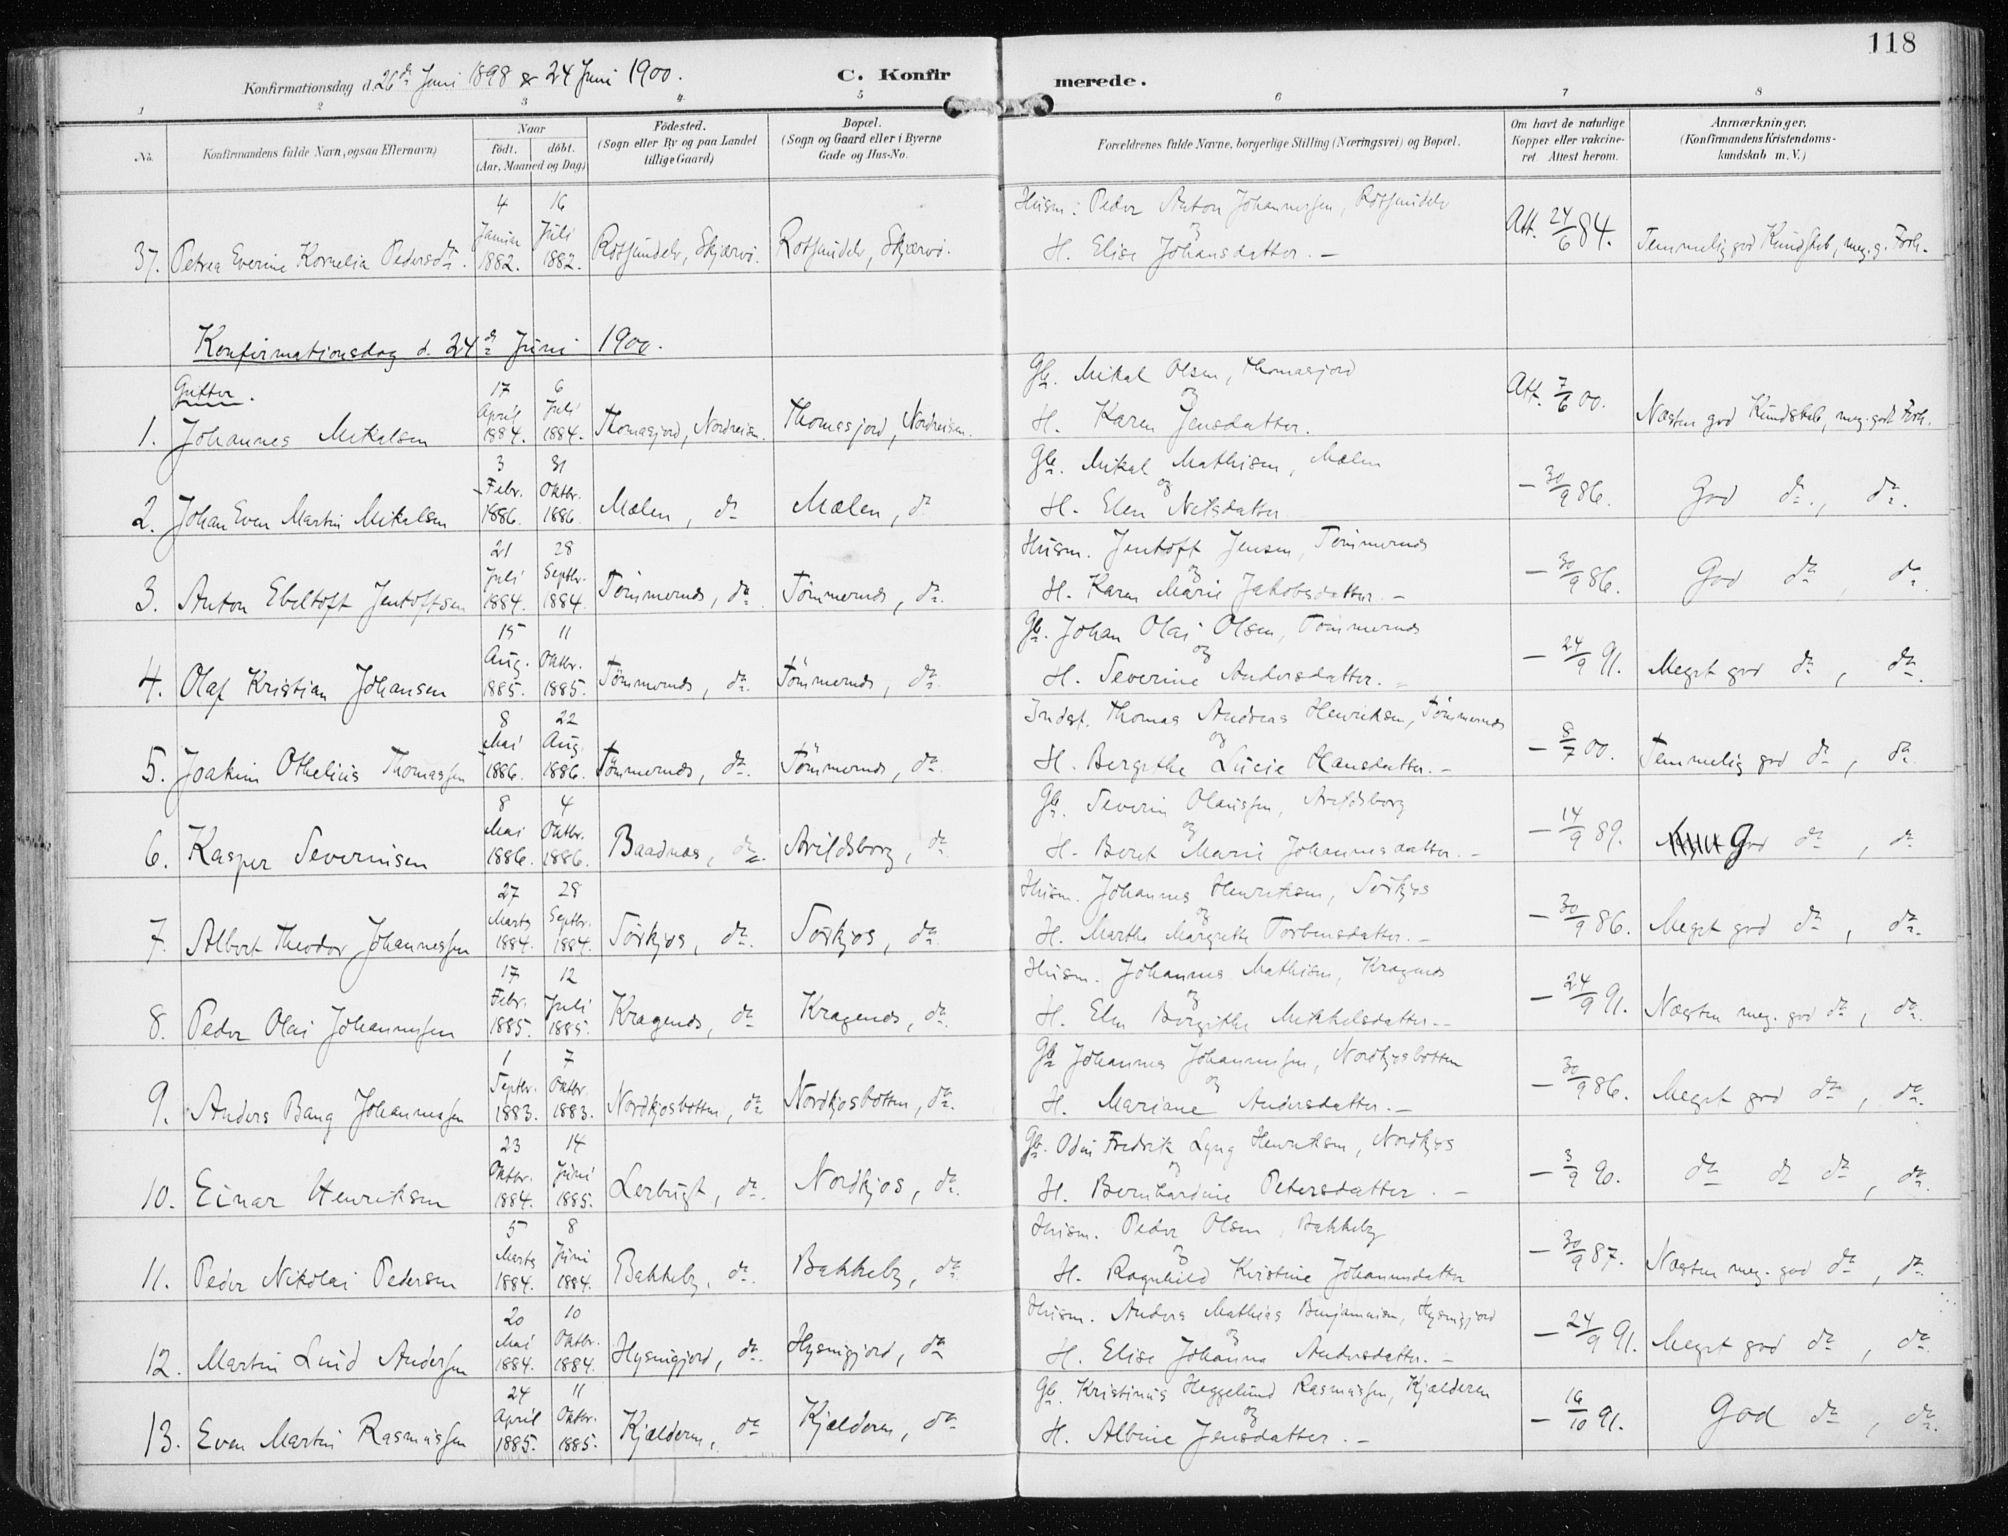 118
Konfirmationsdag d. 26de Juni 1898 & 24 Juni 1900. C. Konfirmerede.
1 2 3 4 5 6 7 8
No. Konfirmandens fulde Navn, (ogsaa Efternavn) Naar født. døbt. (Aar, Maaned og Dag) Fødested. (Sogn eller By og paa Landet tillige Gaard) Bopæl. (Sogn og Gaard eller i Byerne Gade og Hus-No. Forældrenes fulde Navne, borgerlige Stilling (Næringsvei) og Bopæl. Om havt de naturlige Kopper eller vakcineret. Attest herom. Anmærkninger. (Konfirmandens Kristendomskundskab m. V.)
37. Petrea Everine Kornelia Pedersdtr. 4 Januar 1882. 16 Juli 1882. Rotsundelv, Skjærvø. Rotsundelv, Skjærvø. Husm. Peder Anton Johannessen, Rotsundelv og H. Elise Johansdatter. – Att. 24/6 84. Temmelig god Kundskab, meg. g. Forh.
Konfirmationsdag d. 24de Juni 1900.
Gutter.
1. Johannes Mikalsen 17 April 1884. 6 Juli 1884. Thomasjord, Nordreisen. Thomasjord, Nordreisen. Gbr. Mikal Olsen, Thomasjord og H. Karen Jensdatter. Att. 7/6 00. Næsten god Kundskab, meg. godt Forh.
2. Johan Even Martin Mikalsen 3 Febr. 1886. 31 Oktbr. 1886. Mælen, do Mælen, do Gbr. Mikal Mathisen, Mælen og H. Elen Nilsdatter – 30/9 86. God do., do.
3. Anton Ebeltoft Jentoftsen 21 Juli 1884. 28 Septbr. 1884. Tømmernes, do. Tømmernes, do. Husm. Jentoft Jensen, Tømmernes og H. Karen Marie Jakobsdatter. – – 30/9 86. God do, do.
4. Olaf Kristian Johansen 15 Aug. 1885. 11 Oktbr. 1885. Tømmernes, do. Tømmernes, do. Gbr. Johan Olai Olsen, Tømmernes og H. Severine Andersdatter. – – 24/9 91. Meget god do, do.
5. Joakim Othelius Thomassen 8 Mai 1886. 22 Aug. 1886. Tømmernes, do. Tømmernes, do. Indst. Thomas Andreas Henriksen, Tømmernes og H. Bergithe Lucie Hansdatter. – – 8/7 00. Temmelig god do, do.
6. Kasper Severinsen 8 Mai 1886. 4 Oktbr. 1886. Baadnes, do. Avildsborg, do. Gbr. Severin Olaussen, Avildsborg og H. Beret Marie Johannesdatter. – – 14/9 89. God do, do
7. Albert Theodor Johannessen 27 Marts 1884. 28 Septbr. 1884. Sørkjos, do. Sørkjos, do. Husm. Johannes Henriksen, Sørkjos og H. Martha Margrethe Torbensdatter. – – 30/9 86. Meget god do, do.
8. Peder Olai Johannessen 17 Febr. 1885. 12 Juli 1885. Kragenes, do Kragenes, do. Husm. Johannes Mathisen, Kragenes og H. Elen Bergithe Mikkelsdatter. – – 24/9 91. Næsten meg. god do, do.
9. Anders Bang Johannessen 1 Septbr. 1883. 7 Oktbr. 1883. Nordkjosbotten, do Nordkjosbotten, do. Gbr. Johannes Johannessen, Nordkjosbotten og H. Mariane Andersdatter. – – 30/9 86. Meget god do, do.
10. Einar Henriksen 23 Oktbr. 1884. 14 Juni 1885. Lerbugt, do. Nordkjos, do. Gbr. Odin Fredrik Lyng Henriksen, Nordkjos og H. Bernhardine Petersdatter. – – 3/9 90. do do do, do.
11. Peder Nikolai Pedersen 5 Marts 1884. 8 Juni 1884. Bakkeby, do. Bakkeby, do. Husm. Peder Olsen, Bakkeby og H. Ragnhild Kristine Johannesdatter – 30/9 87. Næsten meg. god do, do.
12. Martin Lind Andersen 20 Mai 1884. 10 Oktbr. 1884. Hysingjord, do. Hysingjord, do Husm. Anders Mathias Benjaminsen, Hysingjord og H. Elise Johanna Andersdatter. – – 24/9 91. Meget god do, do.
13. Even Martin Rasmussen 24 April 1885. 11 Oktbr. 1885. Kjælderen, do Kjælderen, do. Gbr. Kristinus Heggelund Rasmussen, Kjælderen og H. Albine Jensdatter. – – 16/10 91. God do, do.